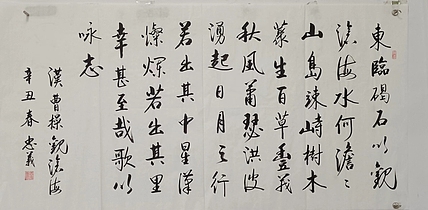 東臨碣石以觀
滄海水何澹〻
山島竦峙樹木
叢生百草豐茂
秋風蕭瑟洪波
湧起日月之行
若出其中星漢
燦爛若出其里
幸甚至哉歌以
咏志
漢曹操觀滄海
辛丑春忠義